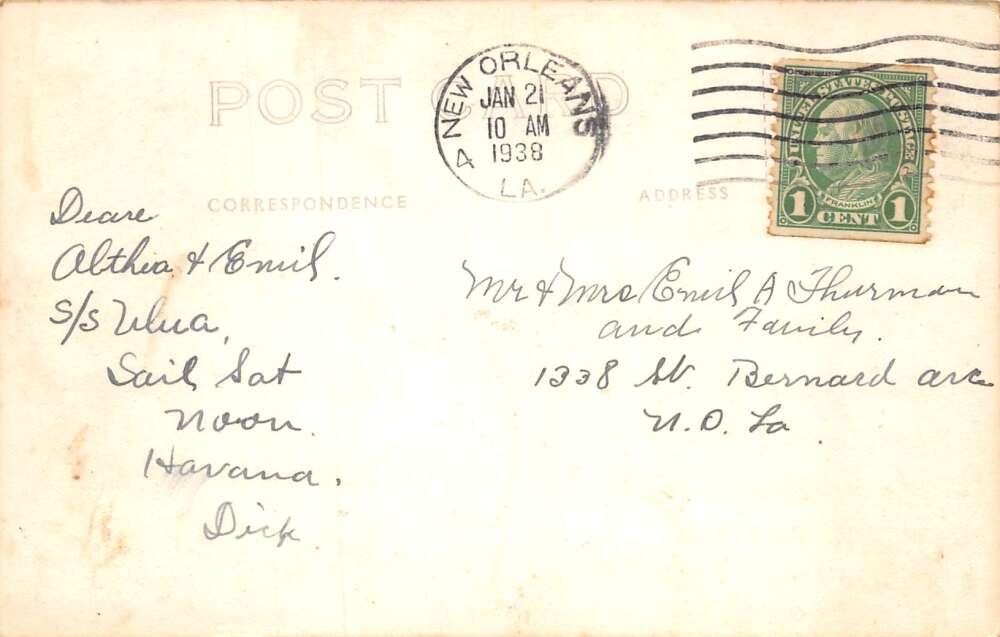 POST CARD
NEW ORLEANS
4
JAN 21
10 AM
1938
LA.
UNITED STATES POSTAGE
FRANKLIN
1 CENT 1
CORRESPONDENCE
ADDRESS
Deare
Althia & Emil.
S/S Ulua,
Sail Sat
Noon.
Havana.
Dick
Mr & Mrs Emil A Thurman
and Family.
1338 St. Bernard ave
N.O. La.